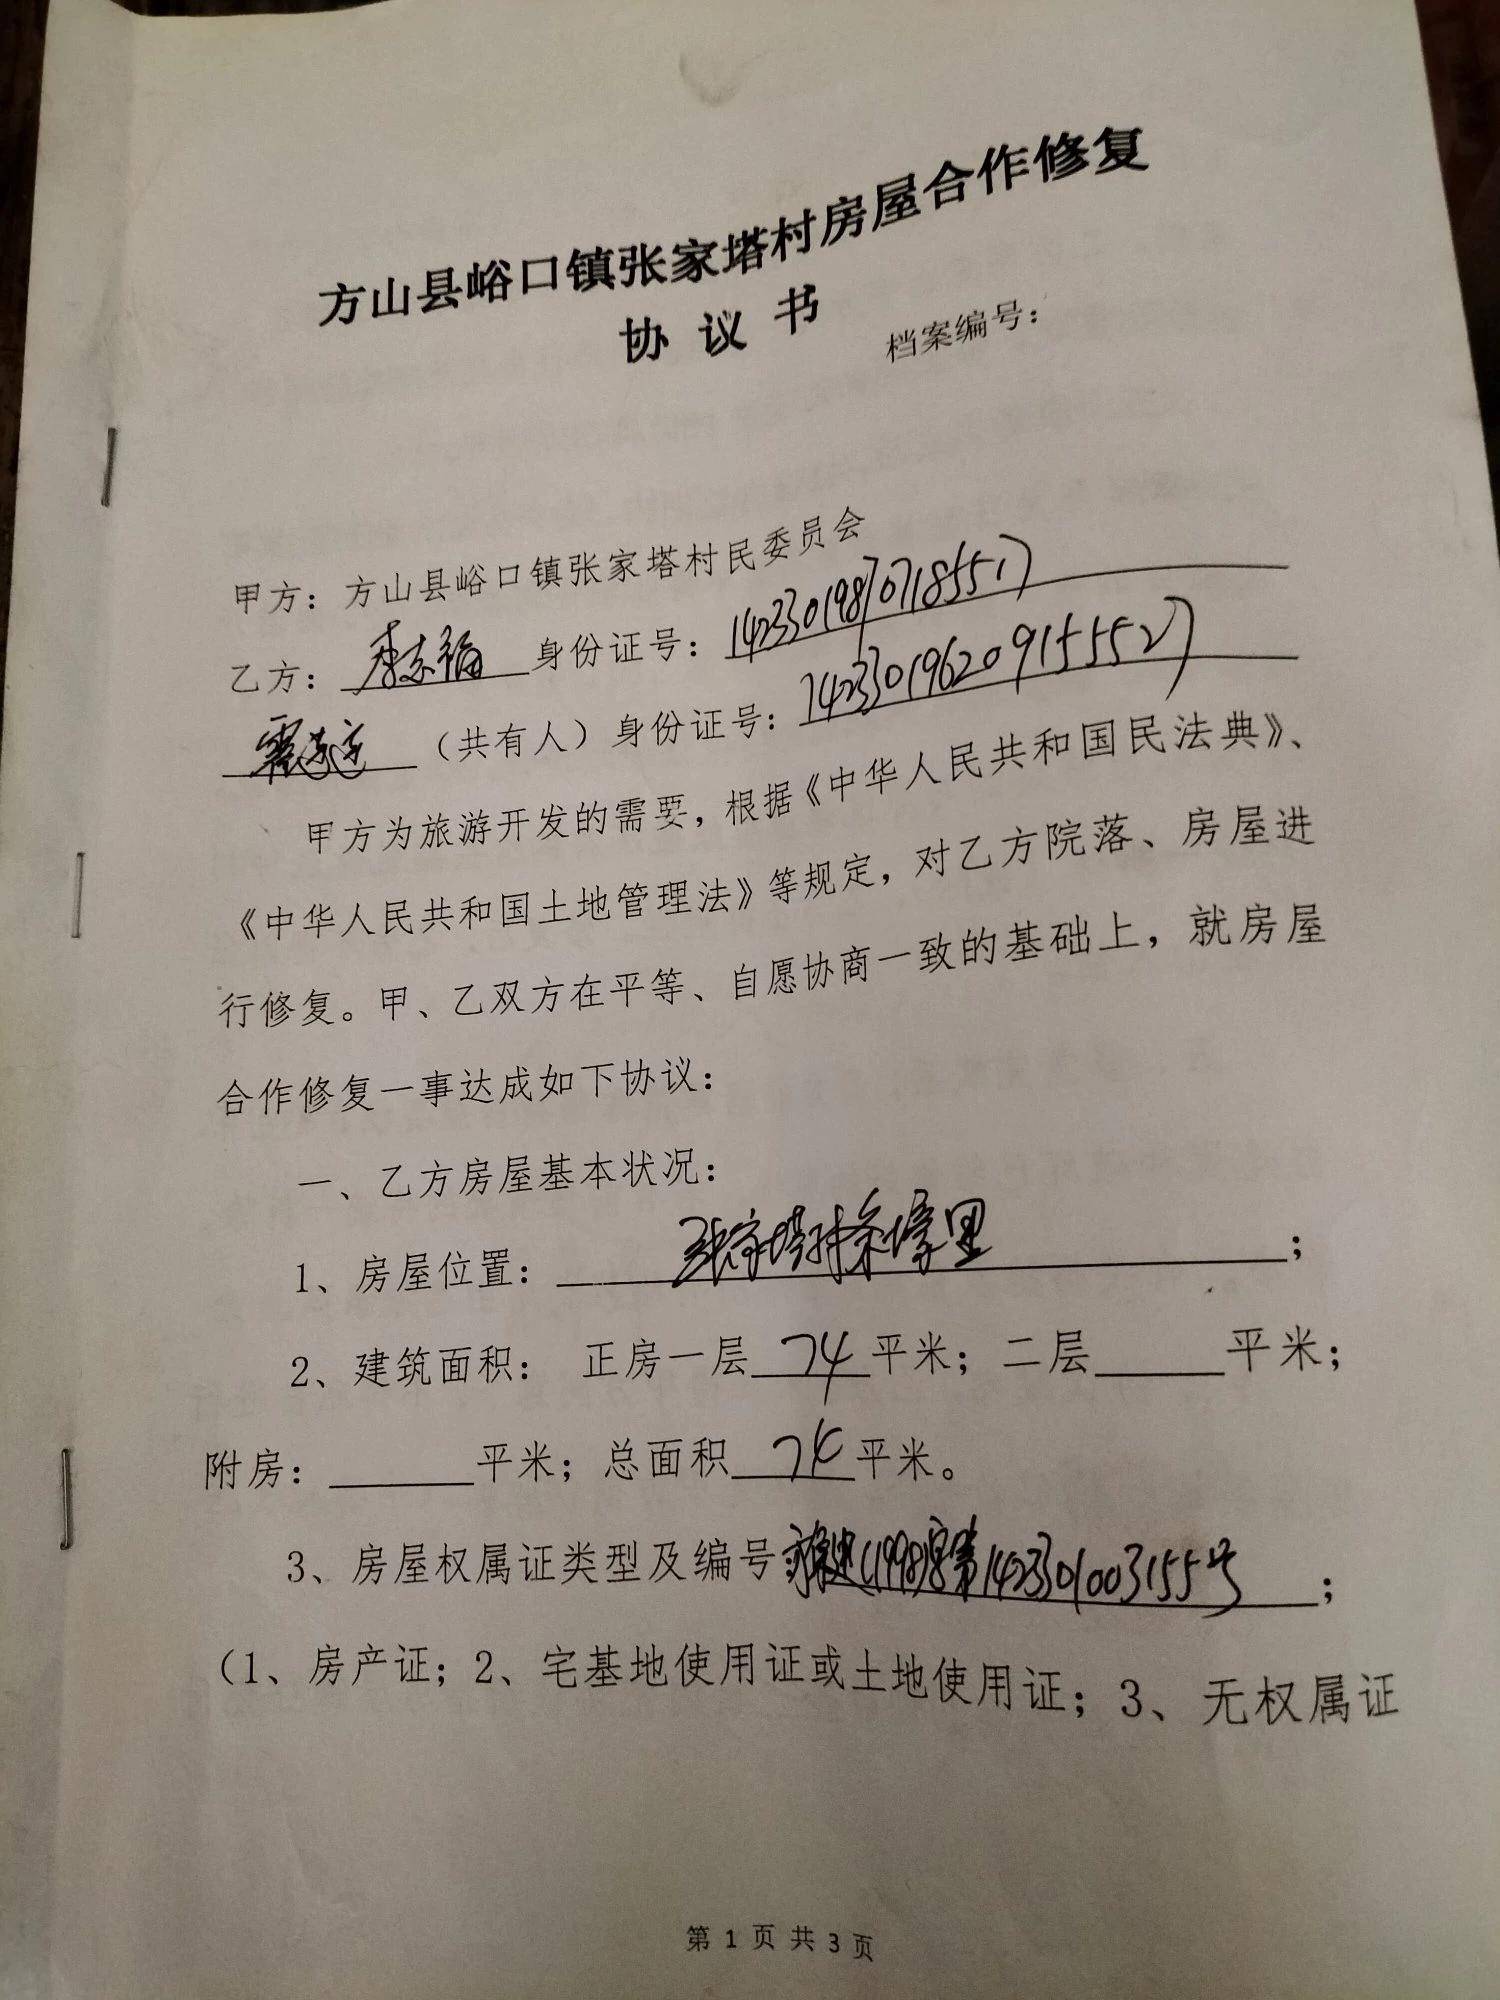 方山县峪口镇张家塔村房屋合作修复
协议书 档案编号：
甲方：方山县峪口镇张家塔村民委员会
乙方：李志福 身份证号：142330198707185517
（共有人）身份证号：142330196209155527
甲方为旅游开发的需要，根据《中华人民共和国民法典》、
《中华人民共和国土地管理法》等规定，对乙方院落、房屋进
行修复。甲、乙双方在平等、自愿协商一致的基础上，就房屋
合作修复一事达成如下协议：
一、乙方房屋基本状况：
1、房屋位置：张家塔村 里；
2、建筑面积： 正房一层 74 平米；二层 平米；
附房： 平米；总面积 74 平米。
3、房屋权属证类型及编号 (1998)字第1423301003155号；
（1、房产证；2、宅基地使用证或土地使用证；3、无权属证
第 1 页 共 3 页